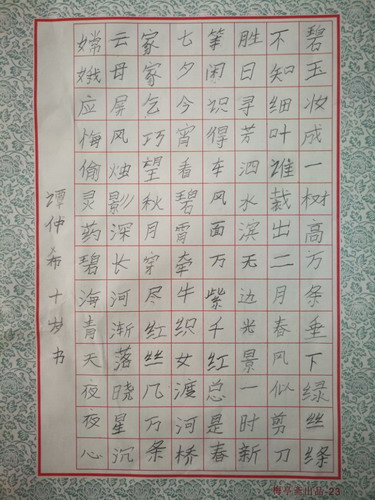 碧玉妆成一树高万条垂下绿丝绦
不知细叶谁裁出二月春风似剪刀
胜日寻芳泗水滨无边光景一时新
等闲识得东风面万紫千红总是春
七夕今宵看碧霄牵牛织女渡河桥
家家乞巧望秋月穿尽红丝几万条
云母屏风烛影深长河渐落晓星沉
嫦娥应悔偷灵药碧海青天夜夜心
谭仲希十岁书
出品-23